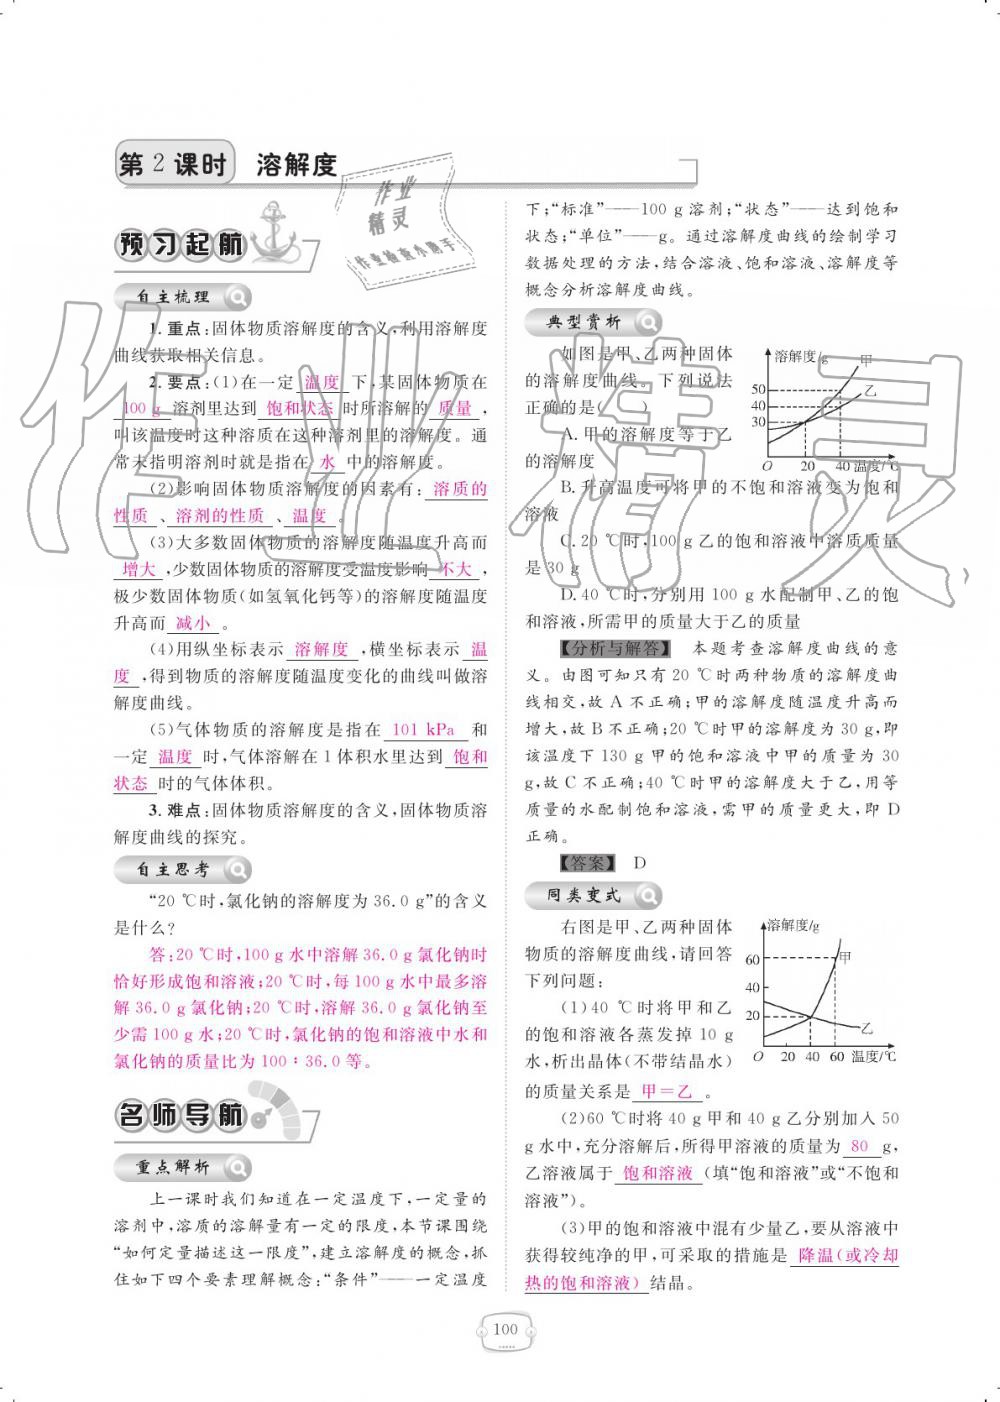 第2课时 溶解度
作业
精灵
作业检查小助手
预习起航
自主梳理
1. 重点:固体物质溶解度的含义,利用溶解度
曲线获取相关信息。
2. 要点:(1)在一定 温度 下,某固体物质在
100 g 溶剂里达到 饱和状态 时所溶解的 质量 ,
叫该温度时这种溶质在这种溶剂里的溶解度。通
常未指明溶剂时就是指在 水 中的溶解度。
(2)影响固体物质溶解度的因素有: 溶质的
性质 、 溶剂的性质 、 温度 。
(3)大多数固体物质的溶解度随温度升高而
增大 ,少数固体物质的溶解度受温度影响 不大 ,
极少数固体物质(如氢氧化钙等)的溶解度随温度
升高而 减小 。
(4)用纵坐标表示 溶解度 ,横坐标表示 温
度 ,得到物质的溶解度随温度变化的曲线叫做溶
解度曲线。
(5)气体物质的溶解度是指在 101 kPa 和
一定 温度 时,气体溶解在1体积水里达到 饱和
状态 时的气体体积。
3. 难点:固体物质溶解度的含义,固体物质溶
解度曲线的探究。
自主思考
“20 ℃时,氯化钠的溶解度为 36.0 g”的含义
是什么?
答:20 ℃时,100 g 水中溶解 36.0 g 氯化钠时
恰好形成饱和溶液;20 ℃时,每 100 g 水中最多溶
解 36.0 g 氯化钠;20 ℃时,溶解 36.0 g 氯化钠至
少需 100 g 水;20 ℃时,氯化钠的饱和溶液中水和
氯化钠的质量比为 100∶36.0 等。
名师导航
重点解析
上一课时我们知道在一定温度下,一定量的
溶剂中,溶质的溶解量有一定的限度,本节课围绕
“如何定量描述这一限度”,建立溶解度的概念,抓
住如下四个要素理解概念:“条件”——一定温度
下;“标准”——100 g 溶剂;“状态”——达到饱和
状态;“单位”——g。通过溶解度曲线的绘制学习
数据处理的方法,结合溶液、饱和溶液、溶解度等
概念分析溶解度曲线。
典型赏析
如图是甲、乙两种固体
的溶解度曲线。下列说法
正确的是( )
A. 甲的溶解度等于乙
的溶解度
溶解度/g
甲
乙
50
40
30
O 20 40 温度/℃
B. 升高温度可将甲的不饱和溶液变为饱和
溶液
C. 20 ℃时,100 g 乙的饱和溶液中溶质质量
是 30 g
D. 40 ℃时,分别用 100 g 水配制甲、乙的饱
和溶液,所需甲的质量大于乙的质量
【分析与解答】 本题考查溶解度曲线的意
义。由图可知只有 20 ℃时两种物质的溶解度曲
线相交,故 A 不正确;甲的溶解度随温度升高而
增大,故 B 不正确;20 ℃时甲的溶解度为 30 g,即
该温度下 130 g 甲的饱和溶液中甲的质量为 30
g,故 C 不正确;40 ℃时甲的溶解度大于乙,用等
质量的水配制饱和溶液,需甲的质量更大,即 D
正确。
【答案】 D
同类变式
右图是甲、乙两种固体
物质的溶解度曲线,请回答
下列问题:
(1)40 ℃时将甲和乙
的饱和溶液各蒸发掉 10 g
水,析出晶体(不带结晶水)
的质量关系是 甲=乙 。
溶解度/g
甲
60
40
20
乙
O 20 40 60 温度/℃
(2)60 ℃时将 40 g 甲和 40 g 乙分别加入 50
g 水中,充分溶解后,所得甲溶液的质量为 80 g,
乙溶液属于 饱和溶液 (填“饱和溶液”或“不饱和
溶液”)。
(3)甲的饱和溶液中混有少量乙,要从溶液中
获得较纯净的甲,可采取的措施是 降温(或冷却
热的饱和溶液) 结晶。
作业精灵
100